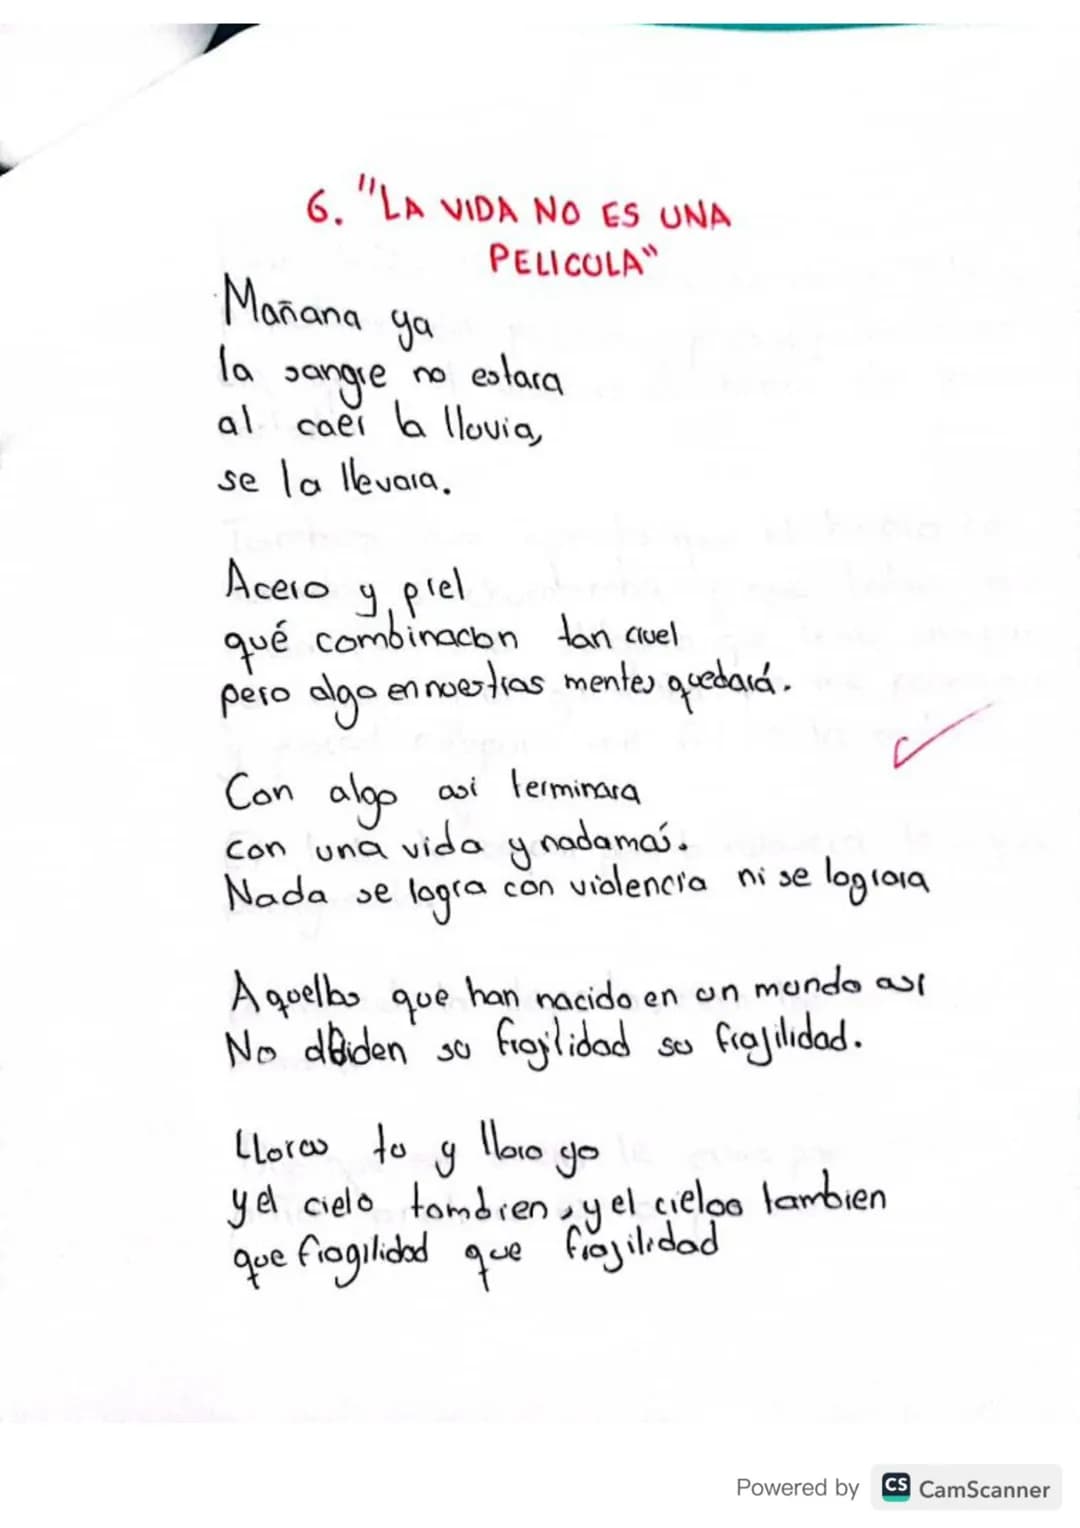 6. "LA VIDA NO ES UNA
PELICULA"
Mañana ya
la sangre no estara
al caer la lluvia,
se la llevara.
Acero y piel
qué combinacion tan cruel
pero algo en nuestras mentes quedará.
Con algo asi terminara
con una vida y nadamas.
Nada se logra con violencia ni se lograra
Aquellos que han nacido en un mundo asi
No olbiden su fragilidad su frajilidad.
Lloras tu y lloro yo
y el cielo tambien, y el cieloo tambien
que fragilidad que frajilidad
Powered by CS CamScanner